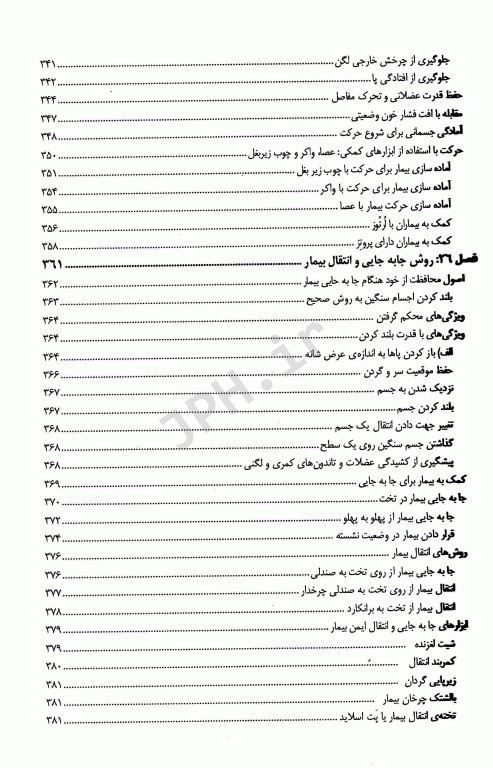 جلوگیری از چرخش خارجی لگن ............ ۳۴۱
جلوگیری از افتادگی پا ............ ۳۴۲
حفظ قدرت عضلانی و تحرک مفاصل ............ ۳۴۴
مقابله با افت فشار خون وضعیتی ............ ۳۴۷
آمادگی جسمانی برای شروع حرکت ............ ۳۴۸
حرکت با استفاده از ابزارهای کمکی: عصا، واکر و چوب زیربغل ............ ۳۵۰
آماده سازی بیمار برای حرکت با چوب زیر بغل ............ ۳۵۱
آماده سازی بیمار برای حرکت با واکر ............ ۳۵۴
آماده سازی حرکت بیمار با عصا ............ ۳۵۵
کمک به بیماران با اُرتُوز ............ ۳۵۶
کمک به بیماران دارای پروتز ............ ۳۵۸
فصل ۲۶: روش جابه جایی و انتقال بیمار ............ ۳۶۱
اصول محافظت از خود هنگام جا به جایی بیمار ............ ۳۶۲
بلند کردن اجسام سنگین به روش صحیح ............ ۳۶۳
ویژگی‌های محکم گرفتن ............ ۳۶۴
ویژگی‌های با قدرت بلند کردن ............ ۳۶۴
الف) باز کردن پاها به اندازه‌ی عرض شانه ............ ۳۶۴
حفظ موقعیت سر و گردن ............ ۳۶۶
نزدیک شدن به جسم ............ ۳۶۷
بلند کردن جسم ............ ۳۶۷
تغییر جهت دادن انتقال یک جسم ............ ۳۶۸
گذاشتن جسم سنگین روی یک سطح ............ ۳۶۸
پیشگیری از کشیدگی عضلات و تاندون‌های کمری و لگنی ............ ۳۶۸
کمک به بیمار برای جا به جایی ............ ۳۶۹
جا به جایی بیمار در تخت ............ ۳۷۰
جا به جایی بیمار از پهلو به پهلو ............ ۳۷۲
قرار دادن بیمار در وضعیت نشسته ............ ۳۷۴
روش‌های انتقال بیمار ............ ۳۷۶
جا به جایی بیمار از روی تخت به صندلی ............ ۳۷۶
انتقال بیمار از روی تخت به صندلی چرخدار ............ ۳۷۷
انتقال بیمار از تخت به برانکارد ............ ۳۷۸
ابزارهای جا به جایی و انتقال ایمن بیمار ............ ۳۷۹
شیت لغزنده ............ ۳۷۹
کمربند انتقال ............ ۳۸۰
زیرپایی گردان ............ ۳۸۱
بالشتک چرخان بیمار ............ ۳۸۱
تخته‌ی انتقال بیمار یا پَت اسلاید ............ ۳۸۱
JPH.ir